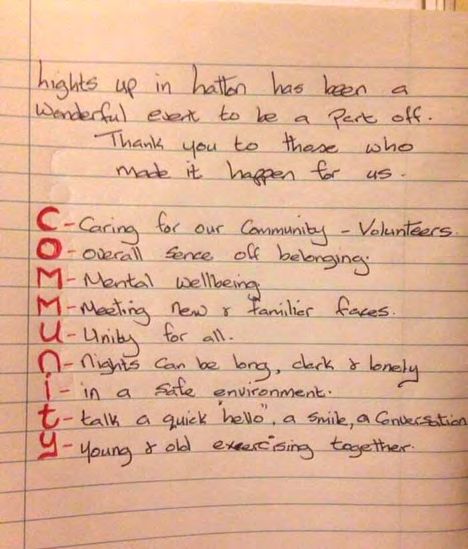 hights up in hatton has been a
Wonderful event to be a Part off.
Thank you to those who
made it happen for us.
C - Caring for our Community - Volunteers.
O - overall sence off belonging.
M - Mental wellbeing.
M - Meeting new & familier faces.
U - Unity for all.
n - nights can be long, dark & lonely
i - in a safe environment.
t - talk a quick "hello", a smile, a Conversation
y - young & old exercising together.